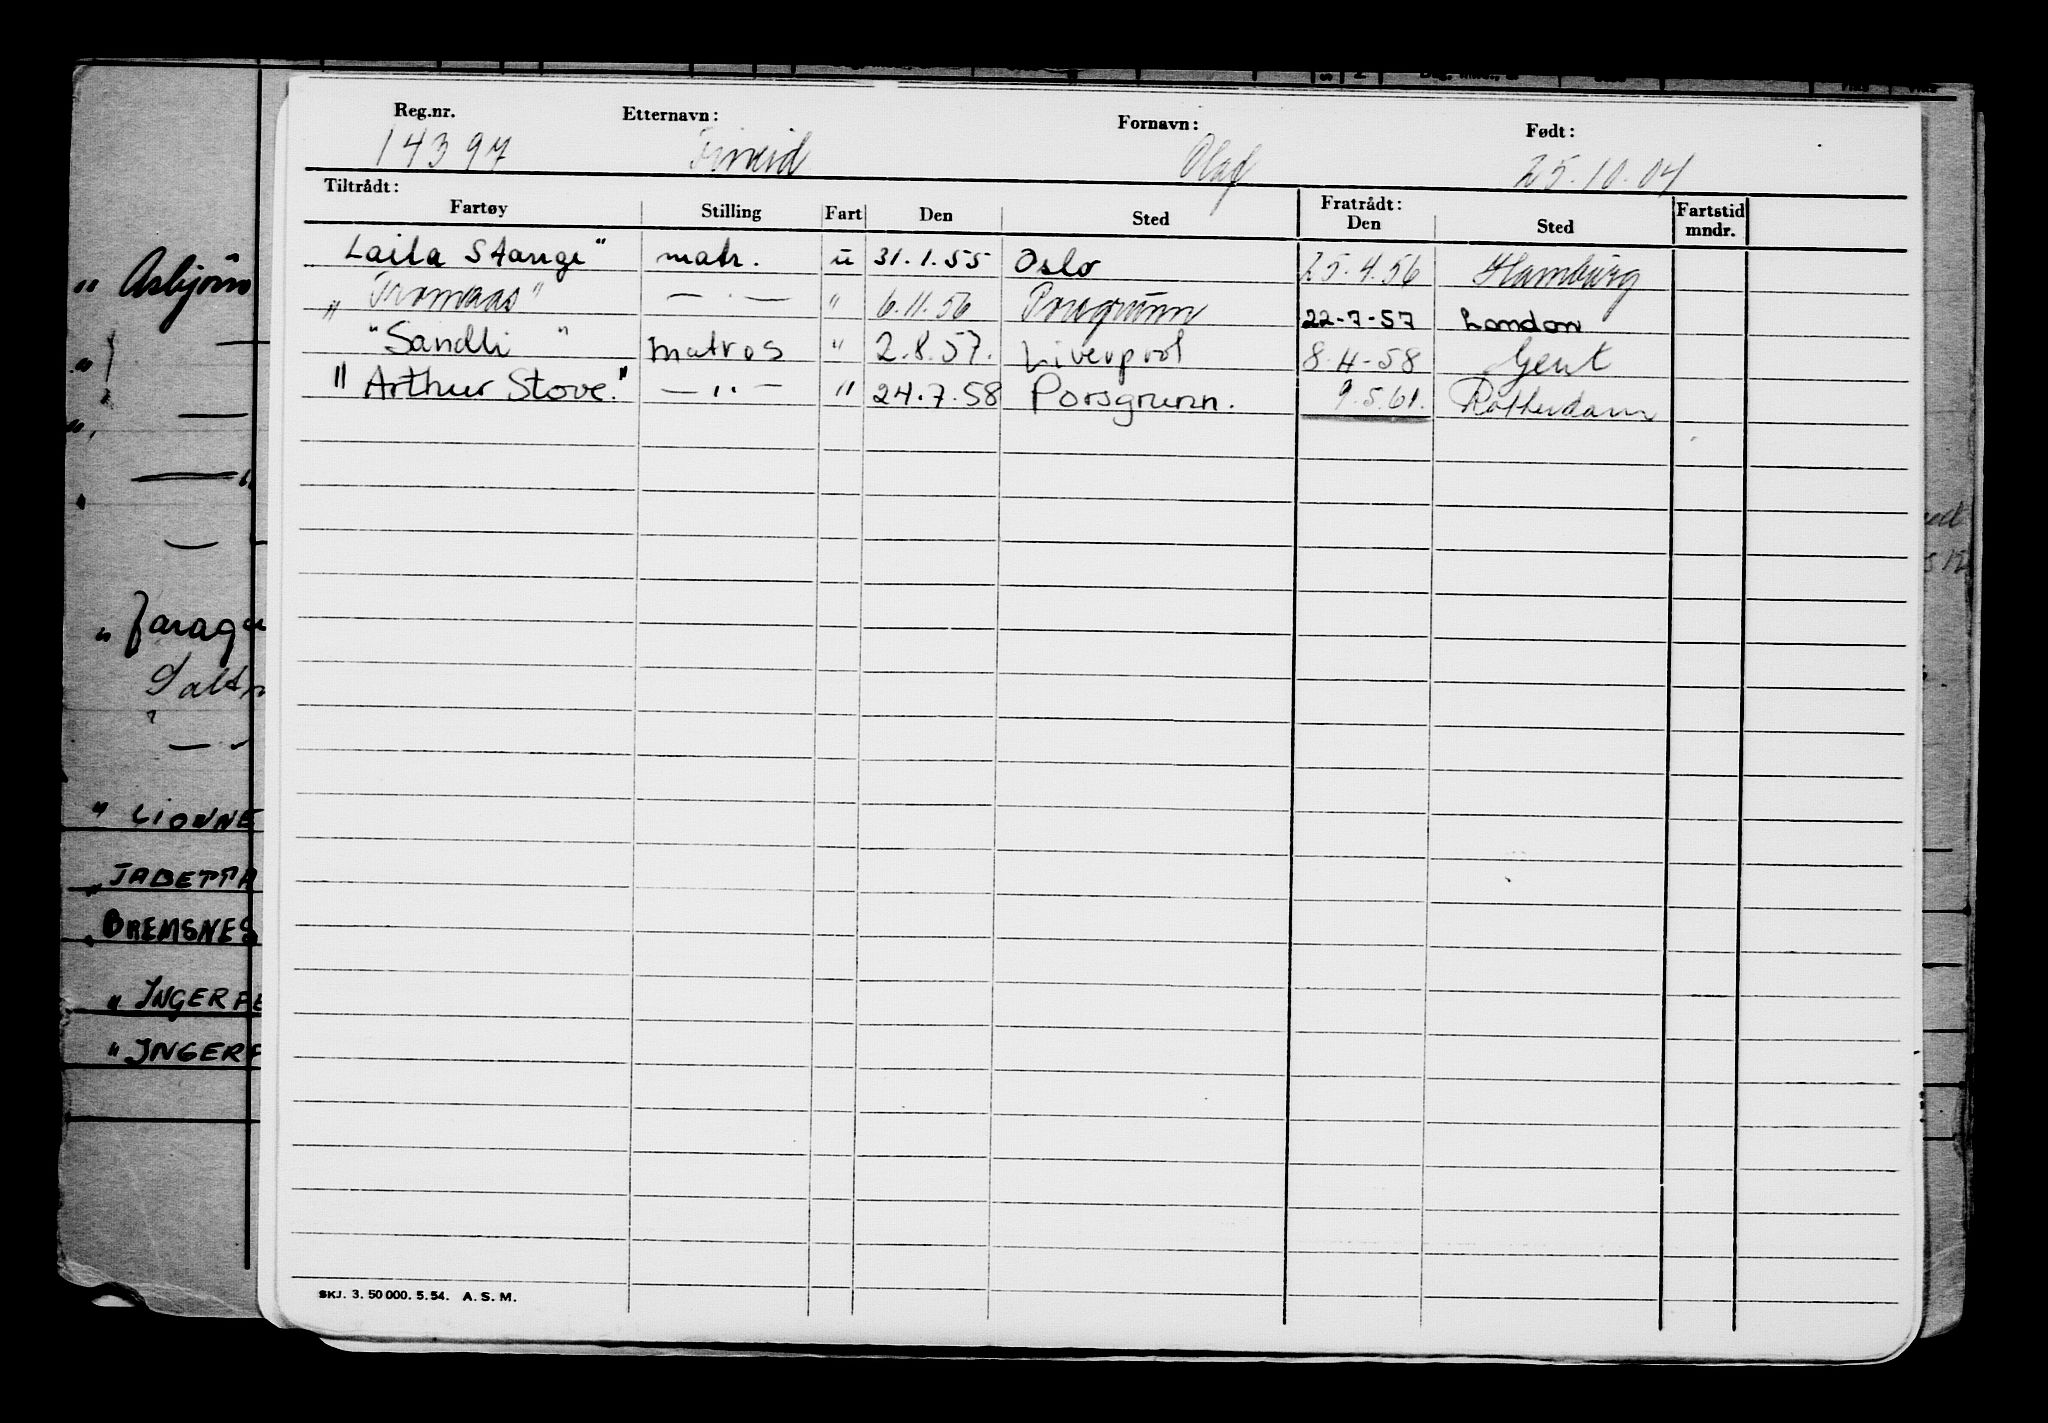 Reg.nr. Etternavn: Fornavn: Født:
14397 Olaf 25.10.04
Tiltrådt: Fratrådt:
Fartøy Stilling Fart Den Sted Den Sted Fartstid mndr.
Laila Stange" matr. u 31.1.55 Oslo 25.4.56 Hamburg
" Tromaas" — . — " 6.11.56 Porsgrunn 22-7-57 London
"Sandli " matros " 2.8.57. Liverpool 8-4-58 Gent
" Arthur Stove." — " — " 24.7.58 Porsgrunn. 9.5.61. Rotterdam
SKJ. 3. 50 000. 5. 54. A. S. M.
" Asbjörn
" LIONNE
" JADETTA
BREMSNES
" INGERFE
" INGERF